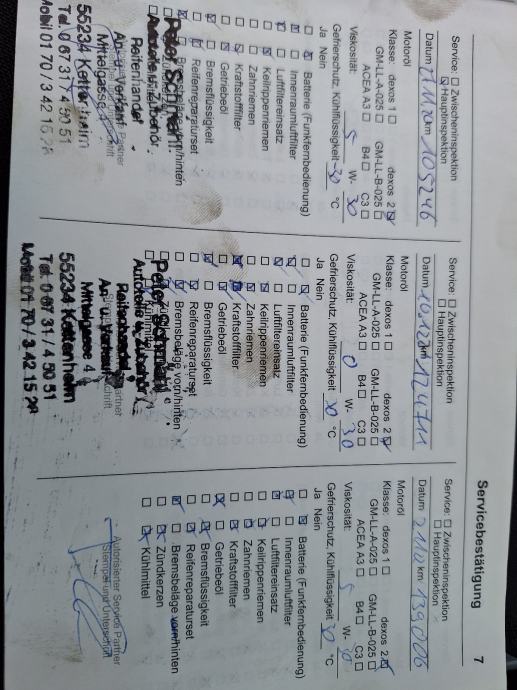 Servicebestätigung
7
Service: ☐ Zwischeninspektion
☒ Hauptinspektion
Datum km 109246
Motoröl
Klasse: dexos 1 ☐ dexos 2 ☒
GM-LL-A-025 ☐ GM-LL-B-025 ☐
ACEA A3 ☐ B4 ☐ C3 ☐
Viskosität: 5 W- 30
Gefrierschutz, Kühlflüssigkeit -30 °C
Ja Nein
Batterie (Funkfernbedienung)
Innenraumluftfilter
Luftfiltereinsatz
Keilrippenriemen
Zahnriemen
Kraftstofffilter
Getriebeöl
Bremsflüssigkeit
Reifenreparaturset
vorn/hinten
Peter
Reifenhandel
An- u. Verkauf
Mittelgasse 4
55234 Kettenheim
Tel. 0 67 31 / 4 50 51
Mobil 01 70 / 3 42 15
Service: ☐ Zwischeninspektion
☐ Hauptinspektion
Datum km 124711
Motoröl
Klasse: dexos 1 ☐ dexos 2 ☒
GM-LL-A-025 ☐ GM-LL-B-025 ☐
ACEA A3 ☐ B4 ☐ C3 ☐
Viskosität: 0 W- 30
Gefrierschutz, Kühlflüssigkeit °C
Ja Nein
Batterie (Funkfernbedienung)
Innenraumluftfilter
Luftfiltereinsatz
Keilrippenriemen
Zahnriemen
Kraftstofffilter
Getriebeöl
Bremsflüssigkeit
Reifenreparaturset
Bremsbeläge vorn/hinten
Peter
Autoteile u. Zubehör
An- u. Verkauf
Mittelgasse 4
55234 Kettenheim
Tel. 0 67 31 / 4 50 51
Mobil 01 70 / 3 42 15
Service: ☐ Zwischeninspektion
☐ Hauptinspektion
Datum km 139006
Motoröl
Klasse: dexos 1 ☐ dexos 2 ☒
GM-LL-A-025 ☐ GM-LL-B-025 ☐
ACEA A3 ☐ B4 ☐ C3 ☐
Viskosität: 5 W- 30
Gefrierschutz, Kühlflüssigkeit °C
Ja Nein
Batterie (Funkfernbedienung)
Innenraumluftfilter
Luftfiltereinsatz
Keilrippenriemen
Zahnriemen
Kraftstofffilter
Getriebeöl
Bremsflüssigkeit
Reifenreparaturset
Bremsbeläge vorn/hinten
Zündkerzen
Kühlmittel
Autorisierter Service Partner
Stempel und Unterschrift